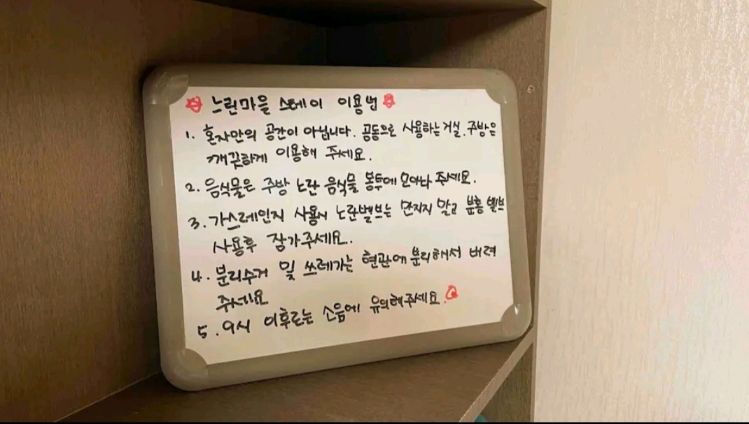 느린마을 스테이 이용법
1. 혼자만의 공간이 아닙니다. 공동으로 사용하는 거실. 주방은
깨끗하게 이용해 주세요.
2. 음식물은 주방 노란 음식물 봉투에 모아놔 주세요.
3. 가스레인지 사용시 노란밸브는 만지지 말고 분홍 밸브
사용후 잠가주세요..
4. 분리수거 및 쓰레기는 현관에 분리해서 버려
주세요
5. 9시 이후로는 소음에 유의해주세요.